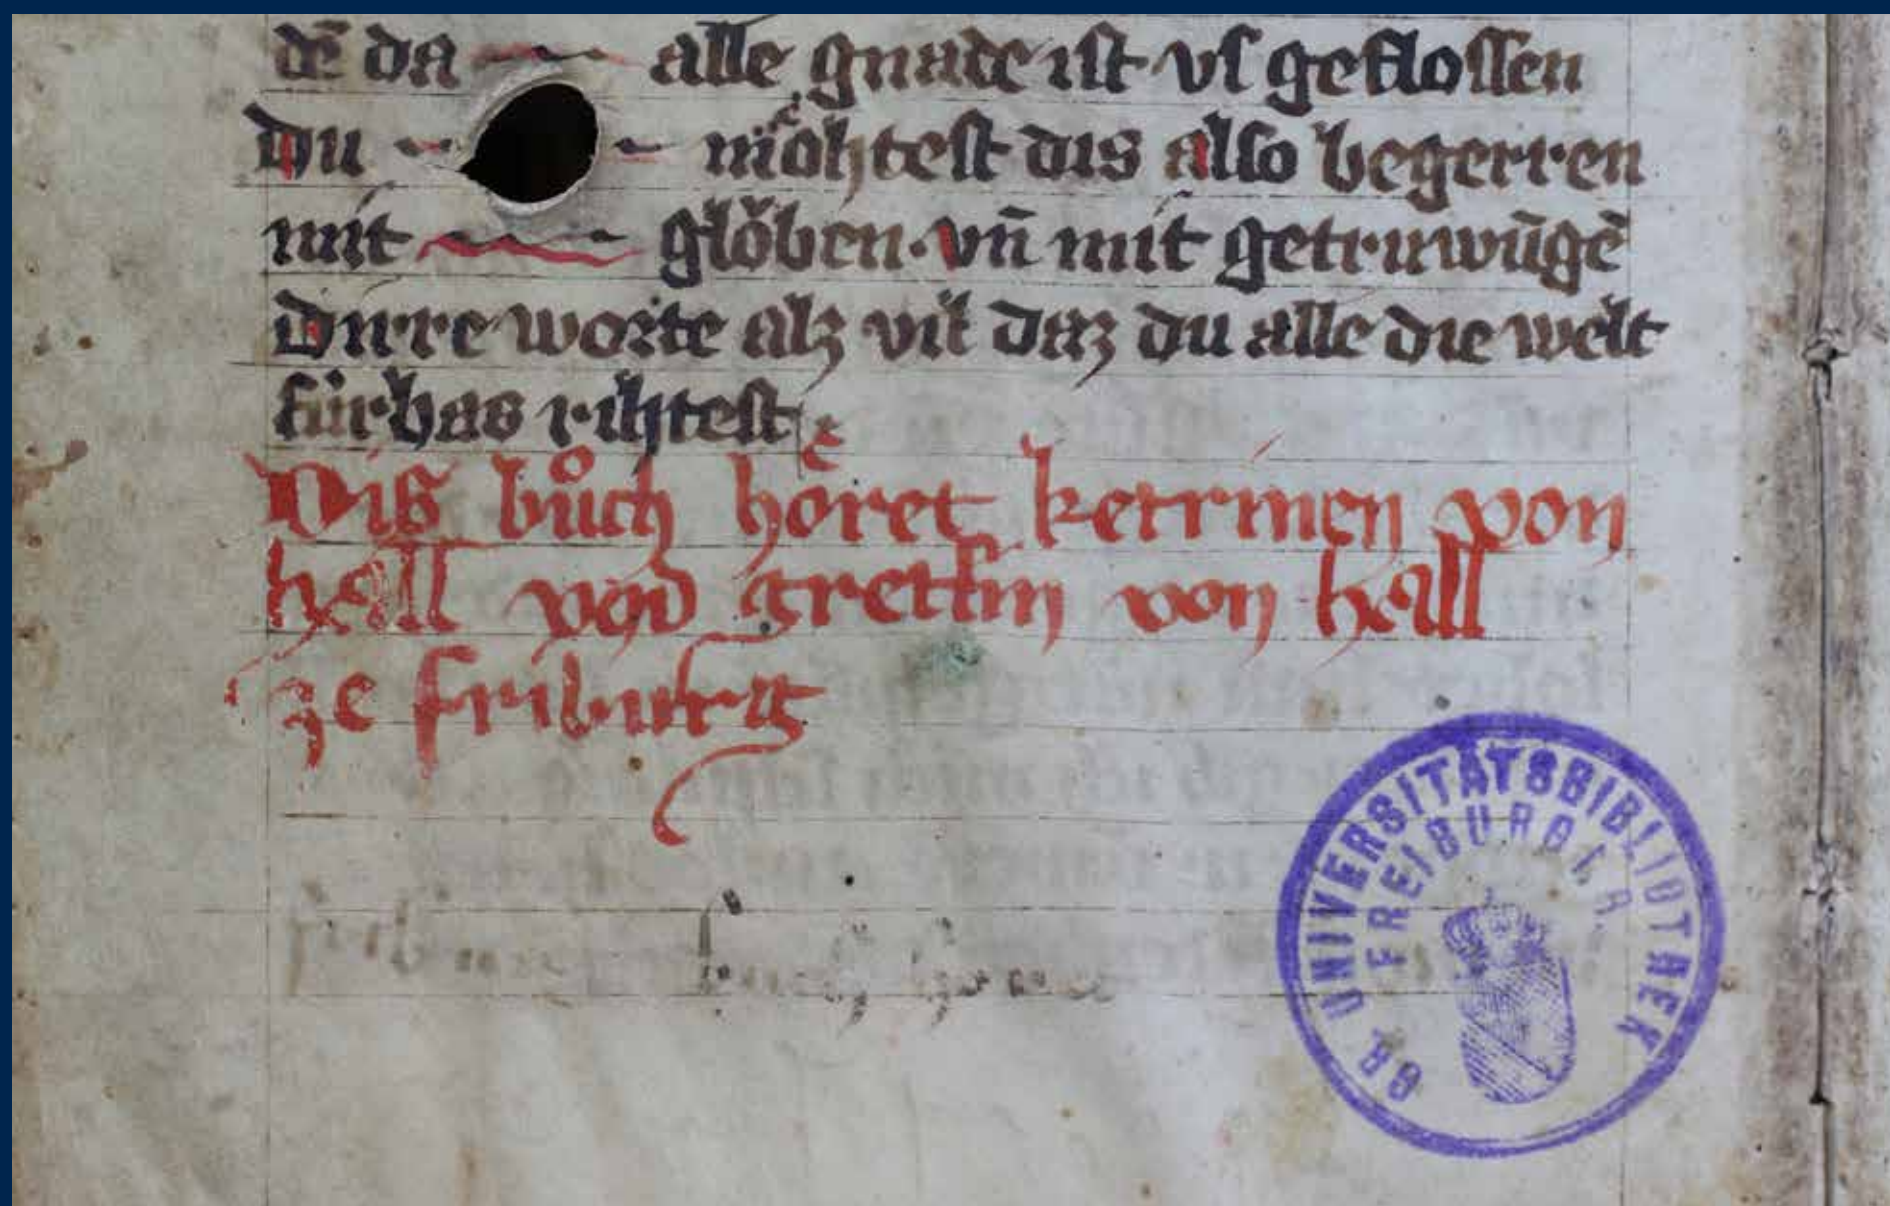 dē da alle gnade ist vs geflossen
Du moͤhtest dis also begerren
mit gloͮben. vn̄ mit getruwūgē
Dirre worte alz vil daz du alle die welt
fúrbas rihtest
Dis bůch hoͤret ketrinen von
hall vnd gretlin von hall
ze friburg
GR. UNIVERSITÄTSBIBLIOTHEK
FREIBURG I. BR.